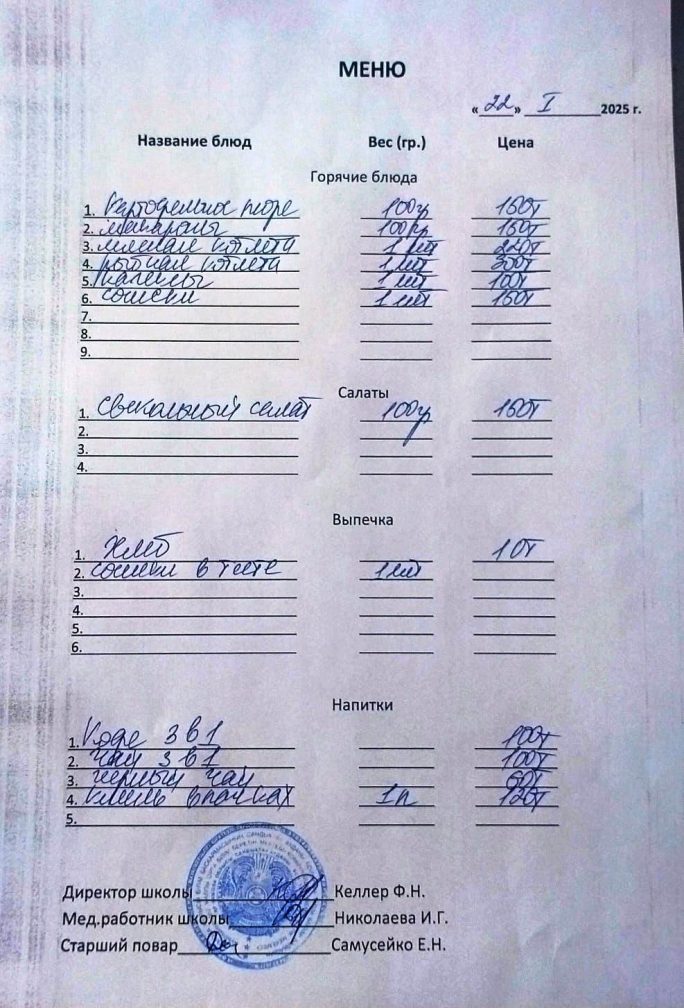 МЕНЮ
«22» I 2025 г.
Название блюд Вес (гр.) Цена
Горячие блюда
1. Картофельное пюре 100гр 150т
2. макароны 100гр 150т
3. мясная котлета 1 шт
4. рыбная котлета 1 шт 300т
5. 1 шт 100т
6. сосиски 1 шт 150т
7.
8.
9.
Салаты
1. Свекольный салат 100гр 150т
2.
3.
4.
Выпечка
1. Хлеб 10т
2. сосиски в тесте 1шт
3.
4.
5.
6.
Напитки
1. Кофе 3 в 1 100т
2. чай 3 в 1 100т
3. черный чай
4. кисель в пачках 1п 120т
5.
Директор школы Келлер Ф.Н.
Мед.работник школы Николаева И.Г.
Старший повар Самусейко Е.Н.